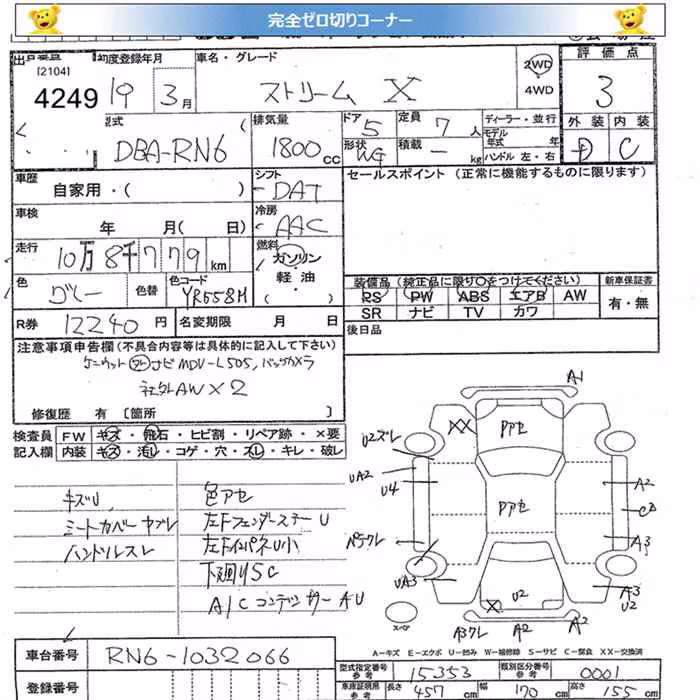 完全ゼロ切りコーナー
初度登録年月 車名・グレード 評価点
[2104]
4249 19 3月 ストリーム X 2WD 4WD 3
型式 排気量 ドア 5 定員 7人 ディーラー・並行 外装 内装
DBA-RN6 1800cc 形状 WG 積載 - kg モデル年式 年 ハンドル 左・右 D C
車歴 シフト セールスポイント (正常に機能するものに限ります)
自家用・( ) DAT
車検 冷房
年 月(日) AAC
走行 10万8千779km 燃料 ガソリン
軽・油
( )
色 グレー 色替 色コード YR558M
装備品 (純正品に限り○をつけてください) 新車保証書
PS PW ABS エアB AW 有・無
SR ナビ TV カワ
R券 12240円 名変期限 月 日 後日品
注意事項申告欄(不具合内容等は具体的に記入して下さい)
ケンウッド ナビ MDV-L505, バックカメラ
社外AW×2
修復歴 有 [箇所 ]
検査員 FW キズ・飛石・ヒビ割・リペア跡・×要
記入欄 内装 キズ・汚レ・コゲ・穴・スレ・キレ・破レ
キズU
シートカバーヤブレ
ハンドルスレ
色アセ
左FフェンダーステーU
左FインパネU小
下廻りSC
A/CコンデンサーAU
A1
XX アセ
U2ズレ
UA2
U4 A2
アセ C
A3
UA3
A3
X U2 U2
スペア A3ワレ A2 A2
A-キズ E-エクボ U-凹み W-補修跡 S-サビ C-腐食 XX-交換済
車台番号 RN6-1032066
型式指定番号 15353 類別区分番号 0001
登録番号
長さ 457cm 幅 170cm 高さ 155cm